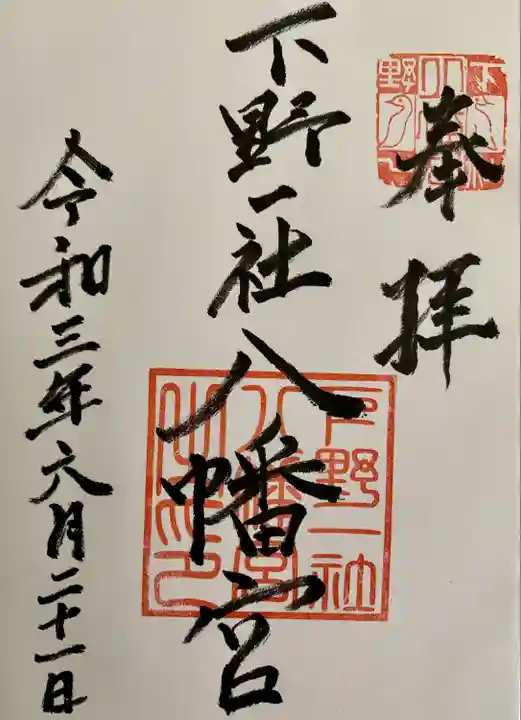 奉拝
下野一社八幡宮
令和三年六月二十一日
下野一社
八幡宮